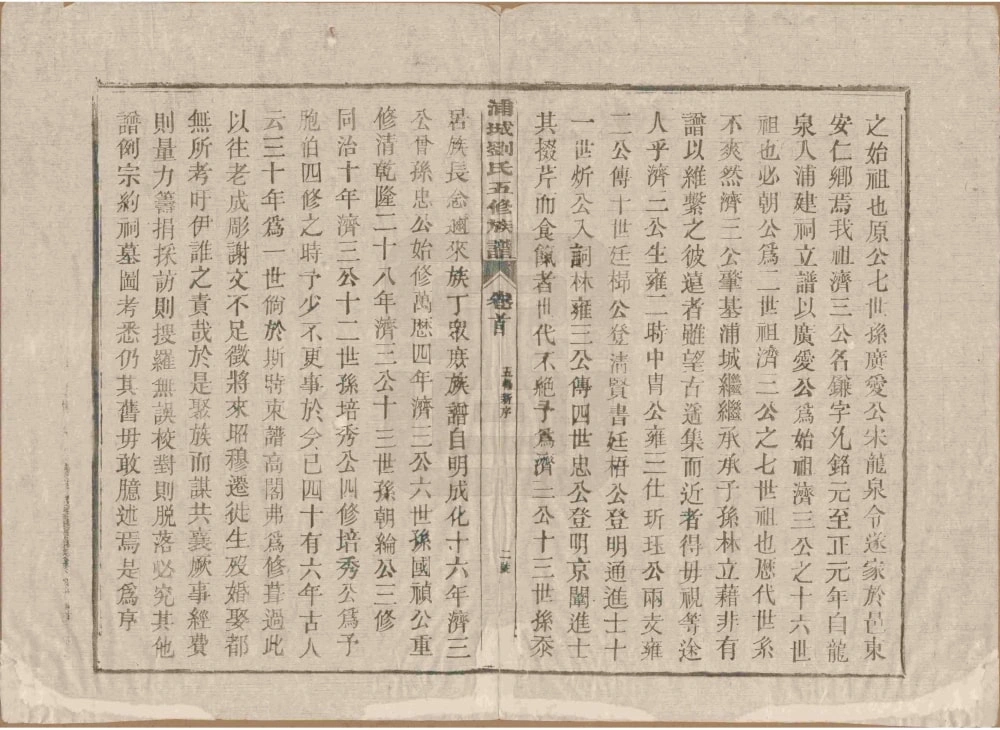 之始祖也原公七世孫廣愛公宋龍泉令遂家於邑東
安仁鄉焉我祖濟三公名鎌字允銘元至正元年自龍
泉入浦建祠立譜以廣愛公爲始祖濟三公之十六世
祖也必朝公爲二世祖濟二公之七世祖也歷代世系
不爽然濟三公肇基浦城繼繼承承子孫林立藉非有
譜以維繫之彼遠者雖望古遙集而近者得毋視等途
人乎濟二公生雍二時中胄公雍三仕珎珏公兩支雍
二公傳十世廷㭿公登淸賢書廷梧公登明通進士十
一世炘公入詞林雍三公傳四世忠公登明京闈進士
其掇芹而食餼者世代不絕予爲濟三公十三世孫忝
浦城劉氏五修族譜
卷首
五修新序
二號
居族長念邇來族丁衆庶族譜自明成化十六年濟三
公曾孫忠公始修萬歷四年濟三公六世孫國禎公重
修清乾隆二十八年濟三公十三世孫朝綸公三修
同治十年濟三公十二世孫培秀公四修培秀公爲予
胞伯四修之時予少不更事於今已四十有六年古人
云三十年爲一世倘於斯時東譜高閣弗爲修葺過此
以往老成彫謝文不足徵將來昭穆遷徙生歿婚娶都
無所考吁伊誰之責哉於是聚族而謀共襄厥事經費
則量力籌捐採訪則搜羅無誤校對則脫落必究其他
譜例宗約祠墓圖考悉仍其舊毋敢臆述焉是爲序